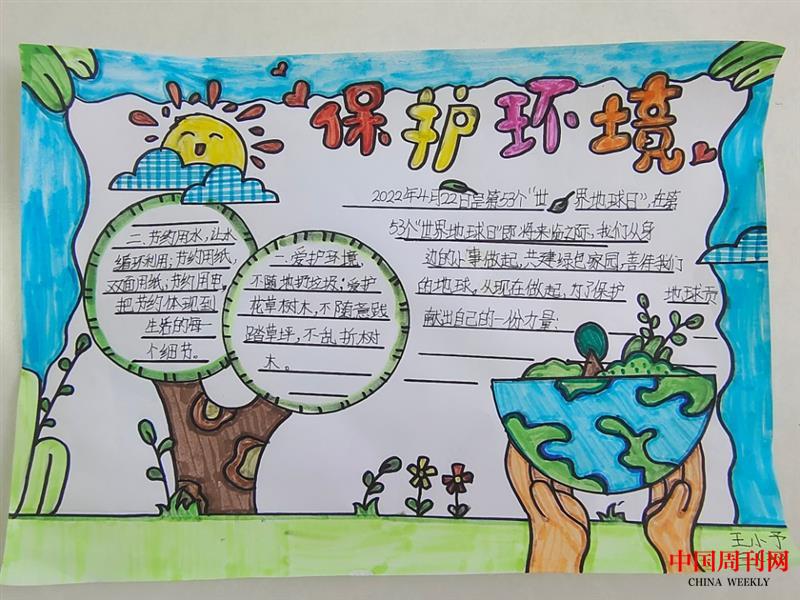 保护环境
2022年4月22日是第53个“世界地球日”,在第
53个“世界地球日”即将来临之际,我们从身
边的小事做起,共建绿色家园,善待我们
的地球。从现在做起,为了保护地球贡
献出自己的一份力量:
一.爱护环境,
不随地扔垃圾;爱护
花草树木,不随意践
踏草坪,不乱折树
木。
二.节约用水,让水
循环利用;节约用纸,
双面用纸,节约用电。
把节约体现到
生活的每一
个细节。
王小予
中国周刊网
CHINA WEEKLY